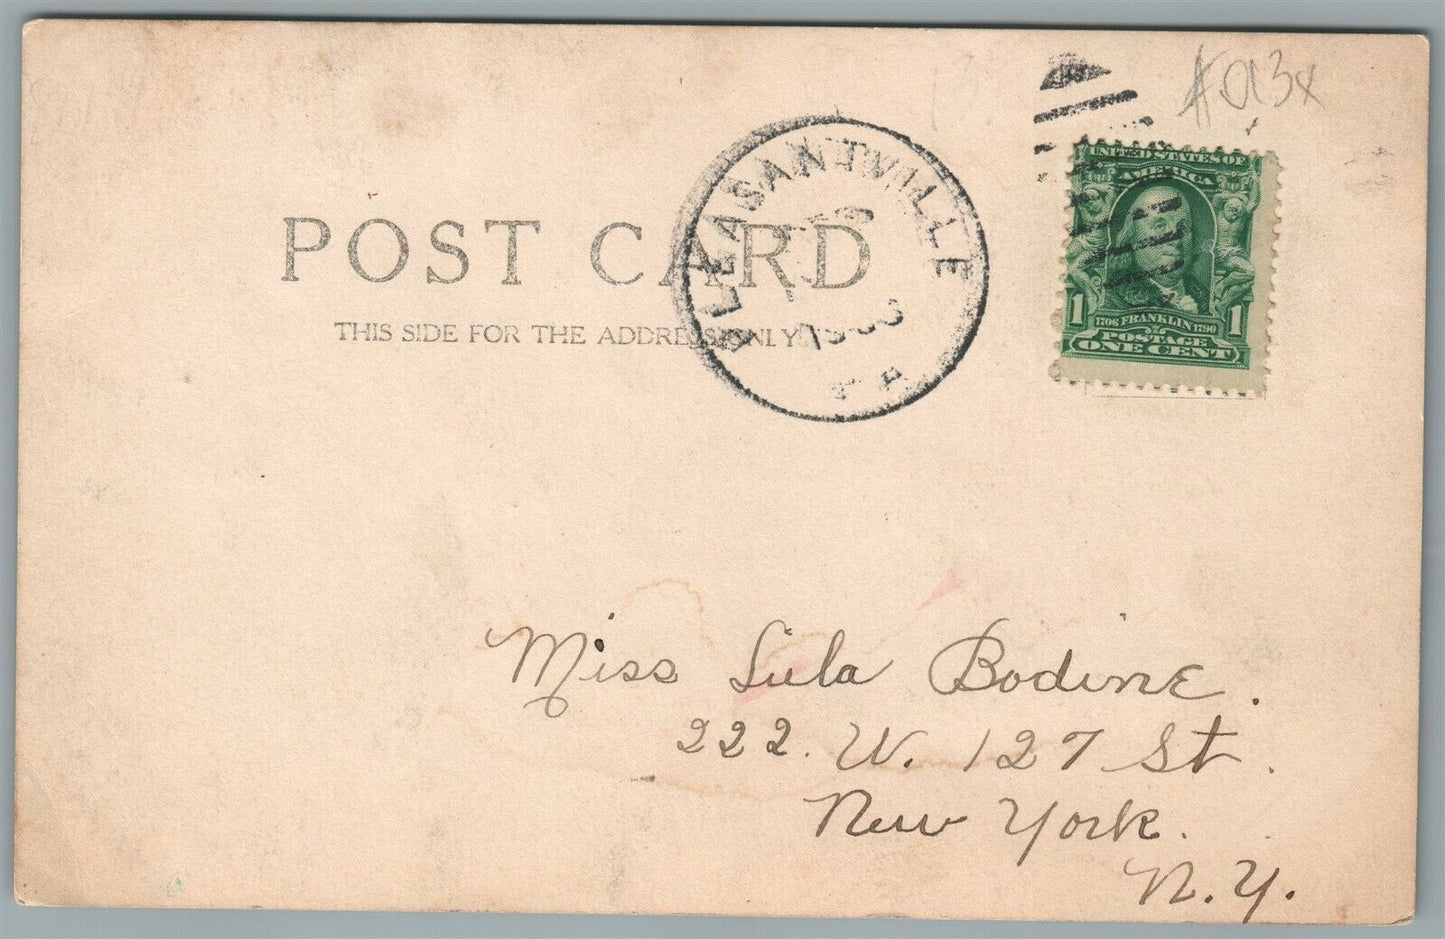 #013x
UNITED STATES OF
AMERICA
POST CARD
PLEASANTVILLE
THIS SIDE FOR THE ADDRESS ONLY
1 1706 FRANKLIN 1790 1
POSTAGE
ONE CENT
Miss Lula Bodine.
222. W. 127 St.
New York.
N.Y.